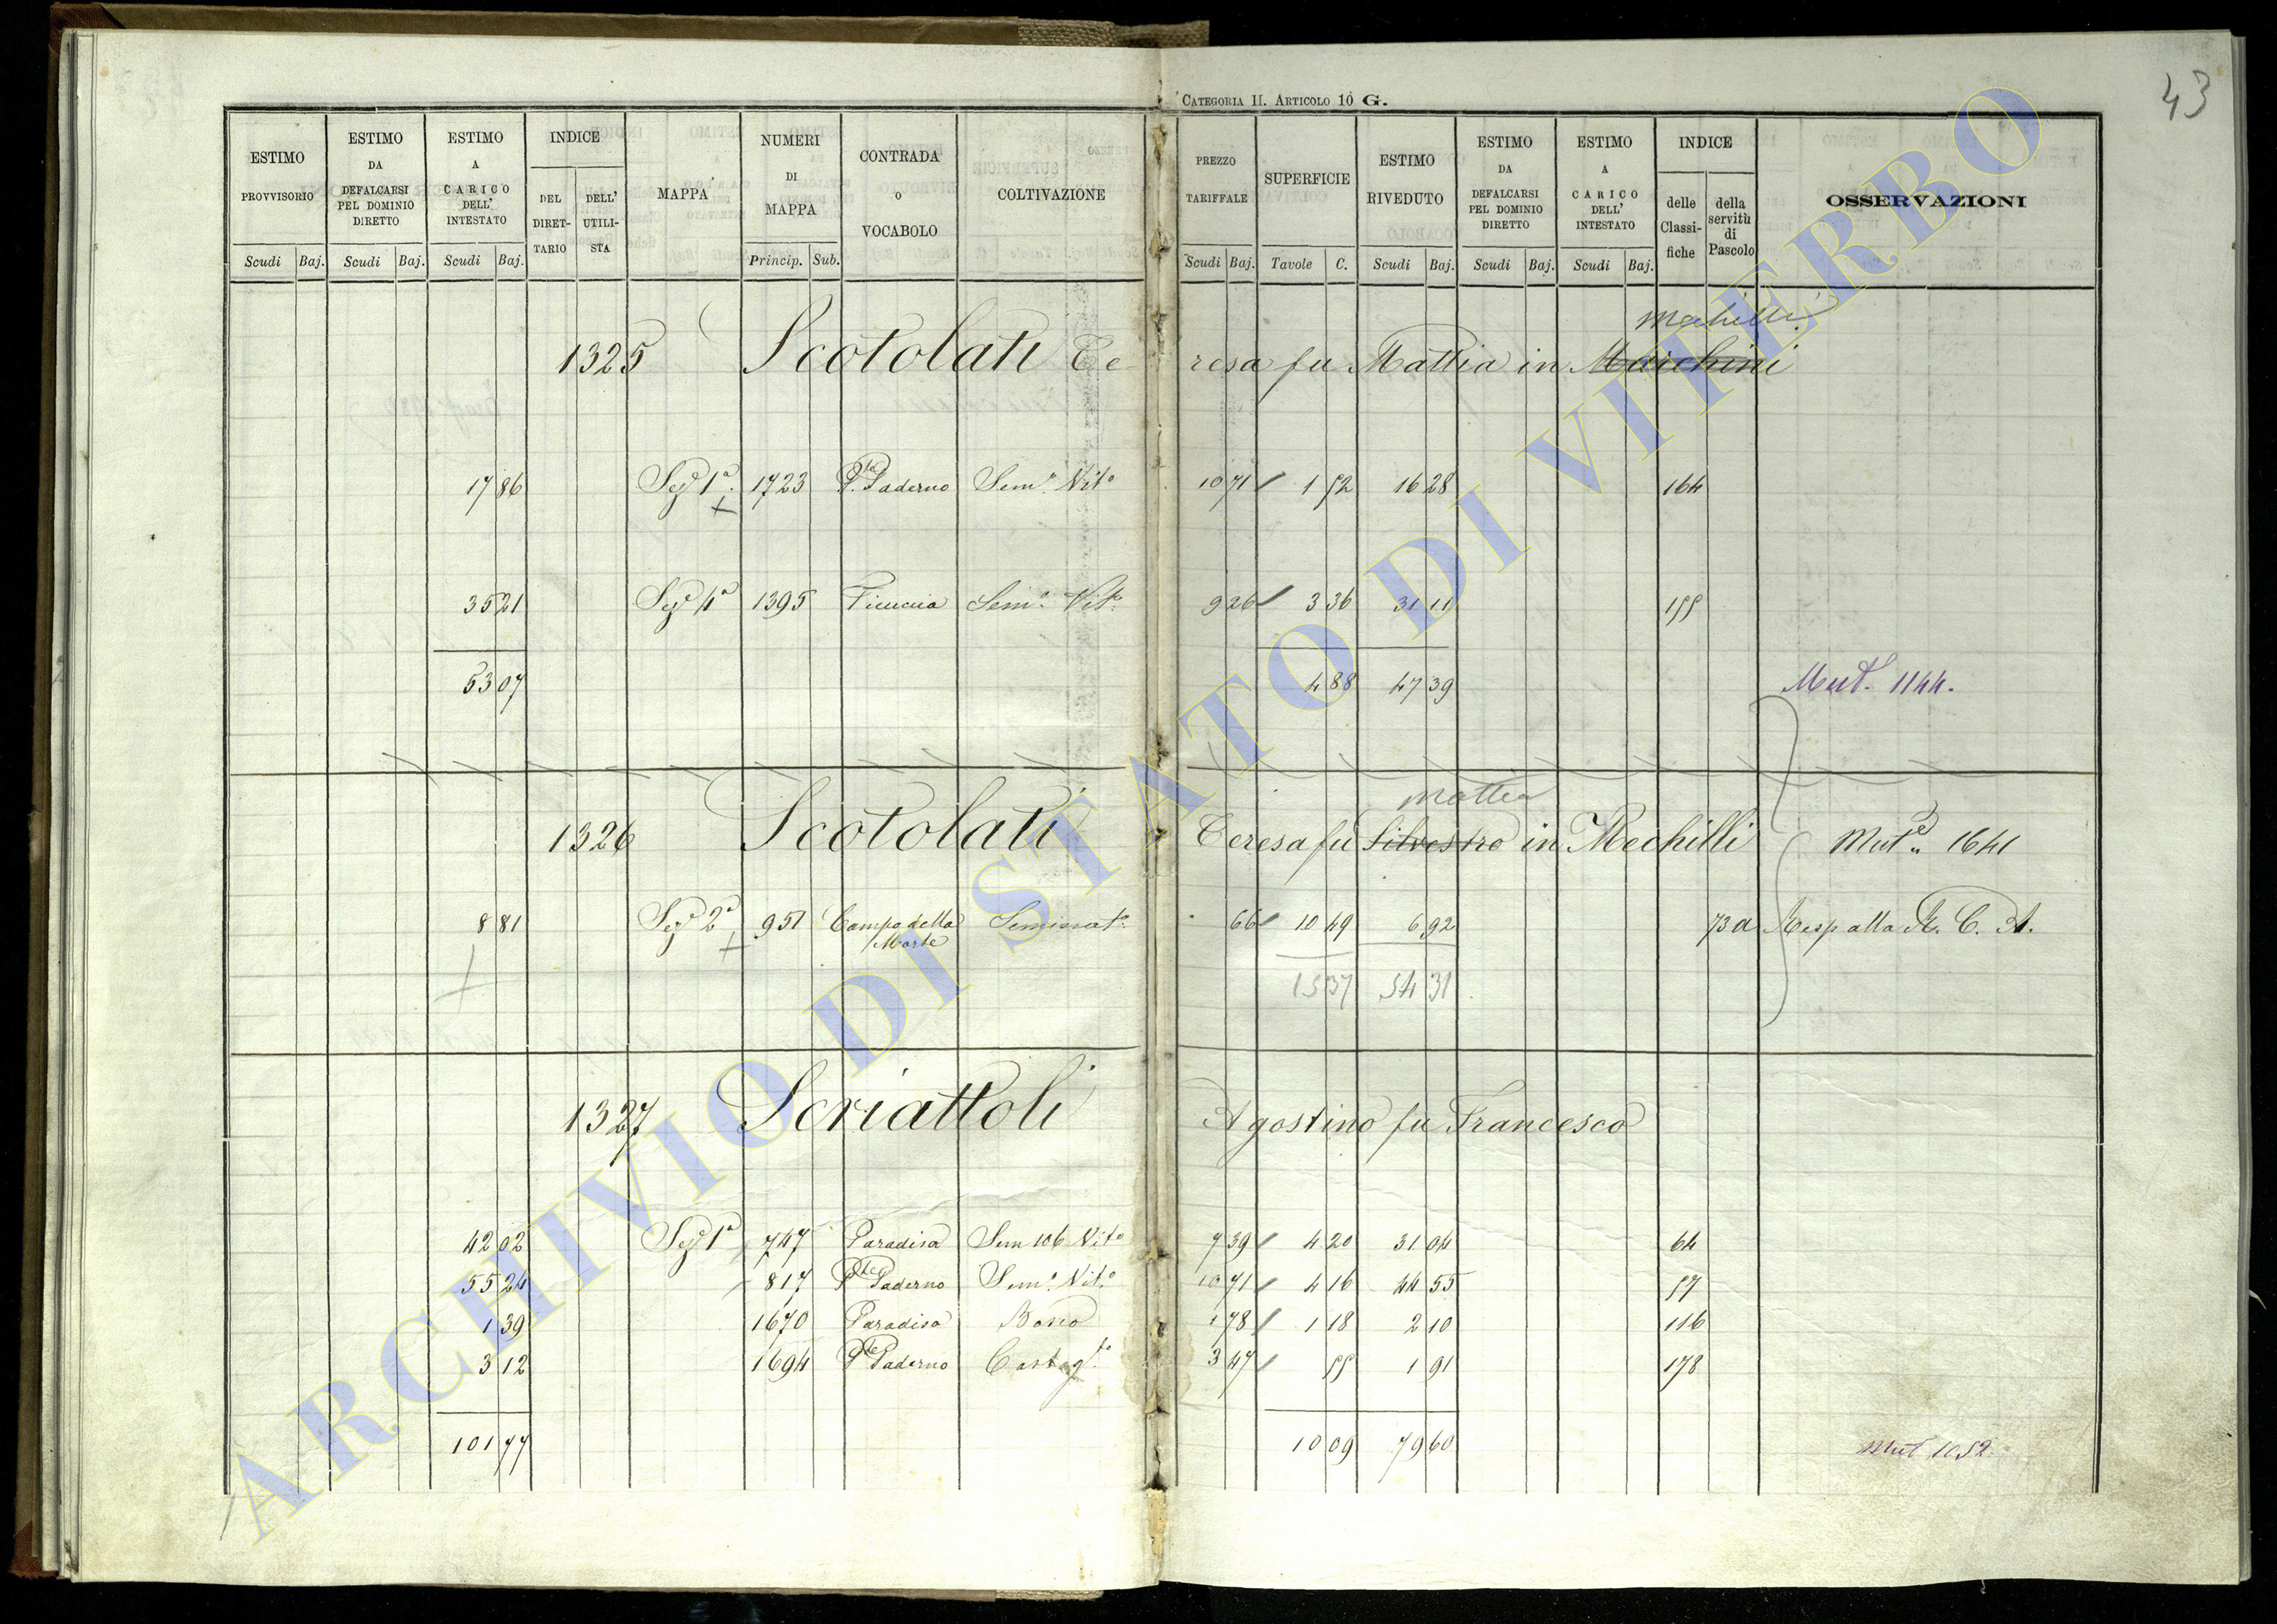 43
CATEGORIA II. ARTICOLO 10 G.
ESTIMO PROVVISORIO Scudi Baj.
ESTIMO DA DEFALCARSI PEL DOMINIO DIRETTO Scudi Baj.
ESTIMO A CARICO DELL' INTESTATO Scudi Baj.
INDICE DEL DIRET- TARIO DELL' UTILI- STA
MAPPA
NUMERI DI MAPPA Princip. Sub.
CONTRADA o VOCABOLO
COLTIVAZIONE
PREZZO TARIFFALE Scudi Baj.
SUPERFICIE Tavole C.
ESTIMO RIVEDUTO Scudi Baj.
ESTIMO DA DEFALCARSI PEL DOMINIO DIRETTO Scudi Baj.
ESTIMO A CARICO DELL' INTESTATO Scudi Baj.
INDICE delle Classi- fiche della servitù di Pascolo
OSSERVAZIONI
Mechilli
1325 Scotolati Te- resa fu Mattia in Marchini
17 86 Sez.e 1a 1723 P.te Paderno Sem.o Vit.o 10 71 1 52 16 28 164
35 21 Sez.e 4a 1395 Ficuccia Sem.o Vit.o 9 26 3 36 31 11 155
53 07 4 88 47 39 Mut. 1144.
Mattia
1326 Scotolati Teresa fu Silvestro in Mechilli Mut.e 1641
8 81 Sez.e 2a 951 Campo della Morte Seminat.o 66 10 49 6 92 73 a Resp alla R. C. A.
15 37 54 31
1327 Scriattoli Agostino fu Francesco
42 02 Sez.e 1a 747 Paradiso Sem 106 Vit.o 7 39 4 20 31 04 64
55 24 817 P.te Paderno Sem.o Vit.o 10 71 4 16 44 55 57
1 39 1670 Paradiso Bosco 1 78 1 18 2 10 116
3 12 1694 P.te Paderno Castag.to 3 47 55 1 91 178
101 77 10 09 79 60 Mut 1052
ARCHIVIO DI STATO DI VITERBO